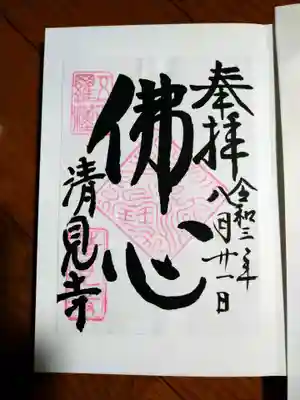 奉拝
令和三年
八月廿一日
佛心
清見寺